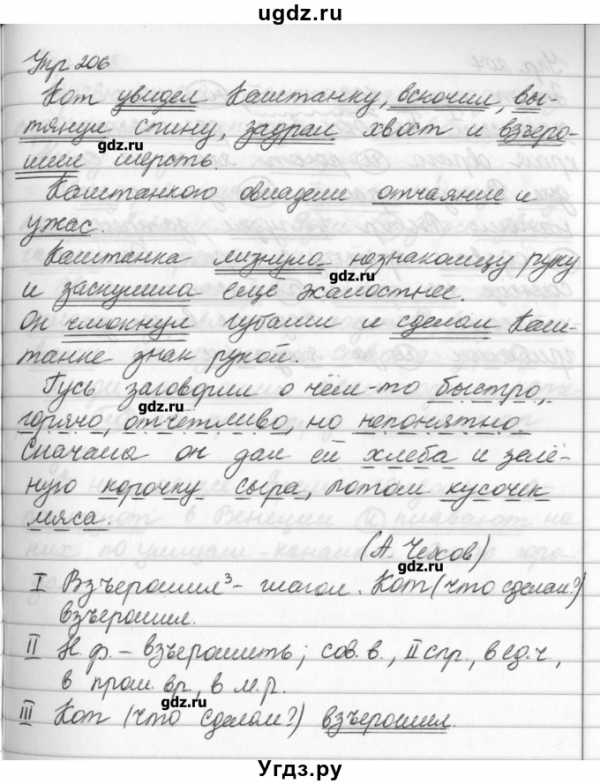 ugdz.ru
Упр 206
Кот увидел Каштанку, вскочил, вы-
тянул спину, задрал хвост и взъеро-
шил шерсть.
gdz.ru
Каштанкою овладели отчаяние и
ужас.
Каштанка лизнула незнакомцу руку
gdz.ru
и заскулила ещё жалостнее.
Он чмокнул губами и сделал Каш-
танке знак рукой.
Гусь заговорил о чём-то быстро,
gdz.ru
горячо, отчётливо, но непонятно
Сначала он дал ей хлеба и зелё-
gdz.ru
ную корочку сыра, потом кусочек
мяса.
(А. Чехов)
gdz.ru
I Взъерошил³ - глагол. Кот (что сделал?)
взъерошил.
II Н.ф. - взъерошить; сов.в., II спр., в ед.ч,
в прош. вр., в м.р.
III Кот (что сделал?) взъерошил.
gdz.ru
Угдз.ру